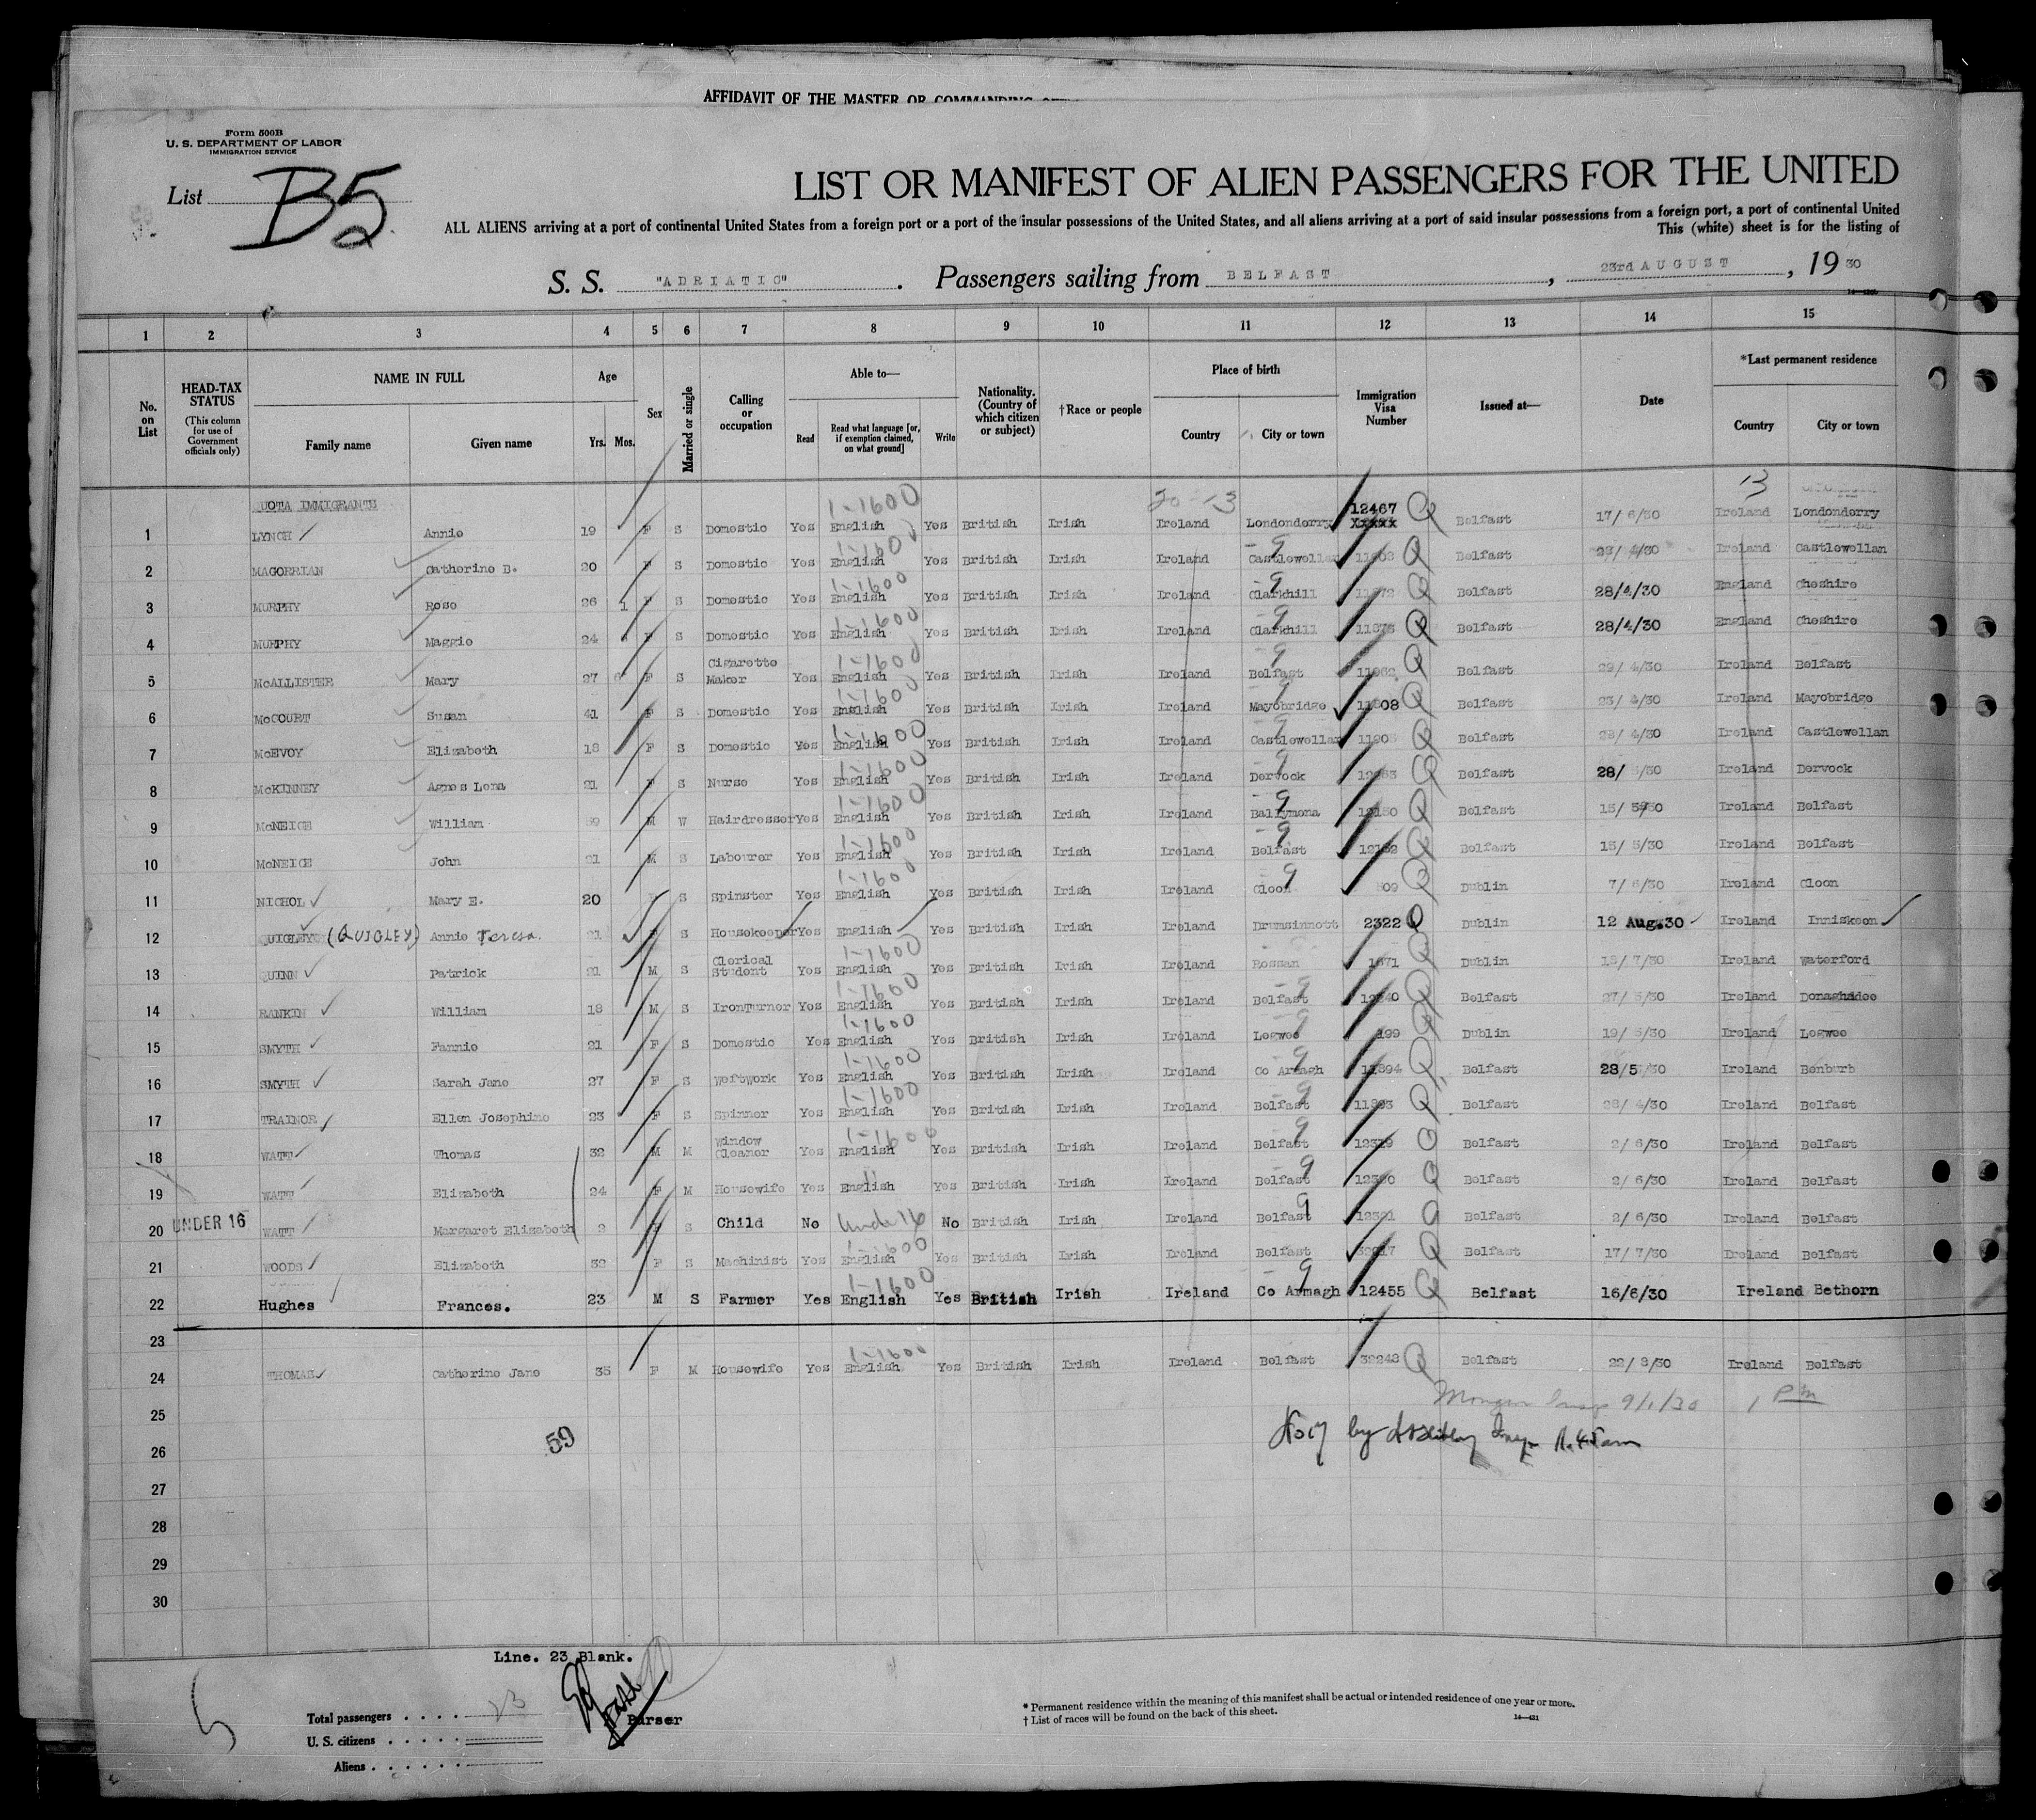 AFFIDAVIT OF THE MASTER OR COMMANDING
Form 500B
U. S. DEPARTMENT OF LABOR
IMMIGRATION SERVICE
List B5
LIST OR MANIFEST OF ALIEN PASSENGERS FOR THE UNITED
ALL ALIENS arriving at a port of continental United States from a foreign port or a port of the insular possessions of the United States, and all aliens arriving at a port of said insular possessions from a foreign port, a port of continental United
This (white) sheet is for the listing of
S. S. "ADRIATIC". Passengers sailing from BELFAST, 23rd AUGUST, 19 30
1 2 3 4 5 6 7 8 9 10 11 12 13 14 15
No. on List
HEAD-TAX STATUS
(This column for use of Government officials only)
NAME IN FULL
Family name Given name
Age
Yrs. Mos.
Sex
Married or single
Calling or occupation
Able to—
Read
Read what language [or, if exemption claimed, on what ground]
Write
Nationality. (Country of which citizen or subject)
†Race or people
Place of birth
Country City or town
Immigration Visa Number
Issued at—
Date
*Last permanent residence
Country City or town
QUOTA IMMIGRANTS 1-1600 20-13 12467 Q 13
1 LYNCH Annie 19 F S Domestic Yes English Yes British Irish Ireland Londonderry xxxxx Belfast 17/6/30 Ireland Londonderry
2 MAGORRIAN Catherine B. 20 F S Domestic Yes 1-1600 English Yes British Irish Ireland Castlewellan 9 Q Belfast 4/30 Ireland Castlewellan
3 MURPHY Rose 26 1 F S Domestic Yes 1-1600 English Yes British Irish Ireland Clarkhill 9 Q Belfast 28/4/30 England Cheshire
4 MURPHY Maggie 24 F S Domestic Yes 1-1600 English Yes British Irish Ireland Clarkhill 9 Q Belfast 28/4/30 England Cheshire
5 McALLISTER Mary 27 6 F S Cigarette Maker Yes 1-1600 English Yes British Irish Ireland Belfast 9 Q Belfast 29/4/30 Ireland Belfast
6 McCOURT Susan 41 F S Domestic Yes 1-1600 English Yes British Irish Ireland Mayobridge 9 11808 Q Belfast 23/4/30 Ireland Mayobridge
7 McEVOY Elizabeth 18 F S Domestic Yes 1-1600 English Yes British Irish Ireland Castlewellan 9 Q Belfast 4/30 Ireland Castlewellan
8 McKINNEY Agnes Lena 21 F S Nurse Yes 1-1600 English Yes British Irish Ireland Dervock 9 Q Belfast 28/ 30 Ireland Dervock
9 McNEICE William M W Hairdresser Yes 1-1600 English Yes British Irish Ireland Ballymena 9 Q Belfast 15/5/30 Ireland Belfast
10 McNEICE John 21 M S Labourer Yes 1-1600 English Yes British Irish Ireland Belfast 9 Q Belfast 15/5/30 Ireland Belfast
11 NICHOL Mary E. 20 S Spinster Yes 1-1600 English Yes British Irish Ireland Cloon 9 Q Dublin 7/6/30 Ireland Cloon
12 (QUIGLEY) Annie Teresa. 21 F S Housekeeper Yes English Yes British Irish Ireland Drumsinnott 2322 Q Dublin 12 Aug.30 Ireland Inniskeen
13 QUINN Patrick 21 M S Clerical Student Yes 1-1600 English Yes British Irish Ireland Rossan Q Dublin 7/30 Ireland Waterford
14 RANKIN William 18 M S IronTurner Yes 1-1600 English Yes British Irish Ireland Belfast 9 Q Belfast 27/5/30 Ireland Donaghadee
15 SMYTH Fannie 21 F S Domestic Yes 1-1600 English Yes British Irish Ireland Legwee 9 Q Dublin 19/ 30 Ireland Legwee
16 SMYTH Sarah Jane 27 F S Weftwork Yes 1-1600 English Yes British Irish Ireland Co Armagh 9 Q Belfast 28/5/30 Ireland Benburb
17 TRAINOR Ellen Josephine 23 F S Spinner Yes 1-1600 English Yes British Irish Ireland Belfast 9 Q Belfast 28/4/30 Ireland Belfast
18 WATT Thomas 32 M M Window Cleaner Yes 1-1600 English Yes British Irish Ireland Belfast 9 12319 Q Belfast 2/6/30 Ireland Belfast
19 WATT Elizabeth 24 F M Housewife Yes English Yes British Irish Ireland Belfast 9 12320 Q Belfast 2/6/30 Ireland Belfast
20 UNDER 16 WATT Margaret Elizabeth 2 F S Child No Under 16 No British Irish Ireland Belfast 9 12321 Q Belfast 2/6/30 Ireland Belfast
21 WOODS Elizabeth F S Machinist Yes 1-1600 English Yes British Irish Ireland Belfast Q Belfast 17/7/30 Ireland Belfast
22 Hughes Frances. 23 M S Farmer Yes 1-1600 English Yes British Irish Ireland Co Armagh 9 12455 Q Belfast 16/6/30 Ireland Bethorn
23
24 THOMAS Catherine Jane 35 F M Housewife Yes 1-1600 English Yes British Irish Ireland Belfast 32248 Q Belfast 22/8/30 Ireland Belfast
25 9/1/30 1 PM
26 59 by
27
28
29
30
Line. 23 Blank.
Purser
Total passengers . . . . 23
U. S. citizens . . . . .
Aliens . . . . . .
* Permanent residence within the meaning of this manifest shall be actual or intended residence of one year or more.
† List of races will be found on the back of this sheet.
14—421
5